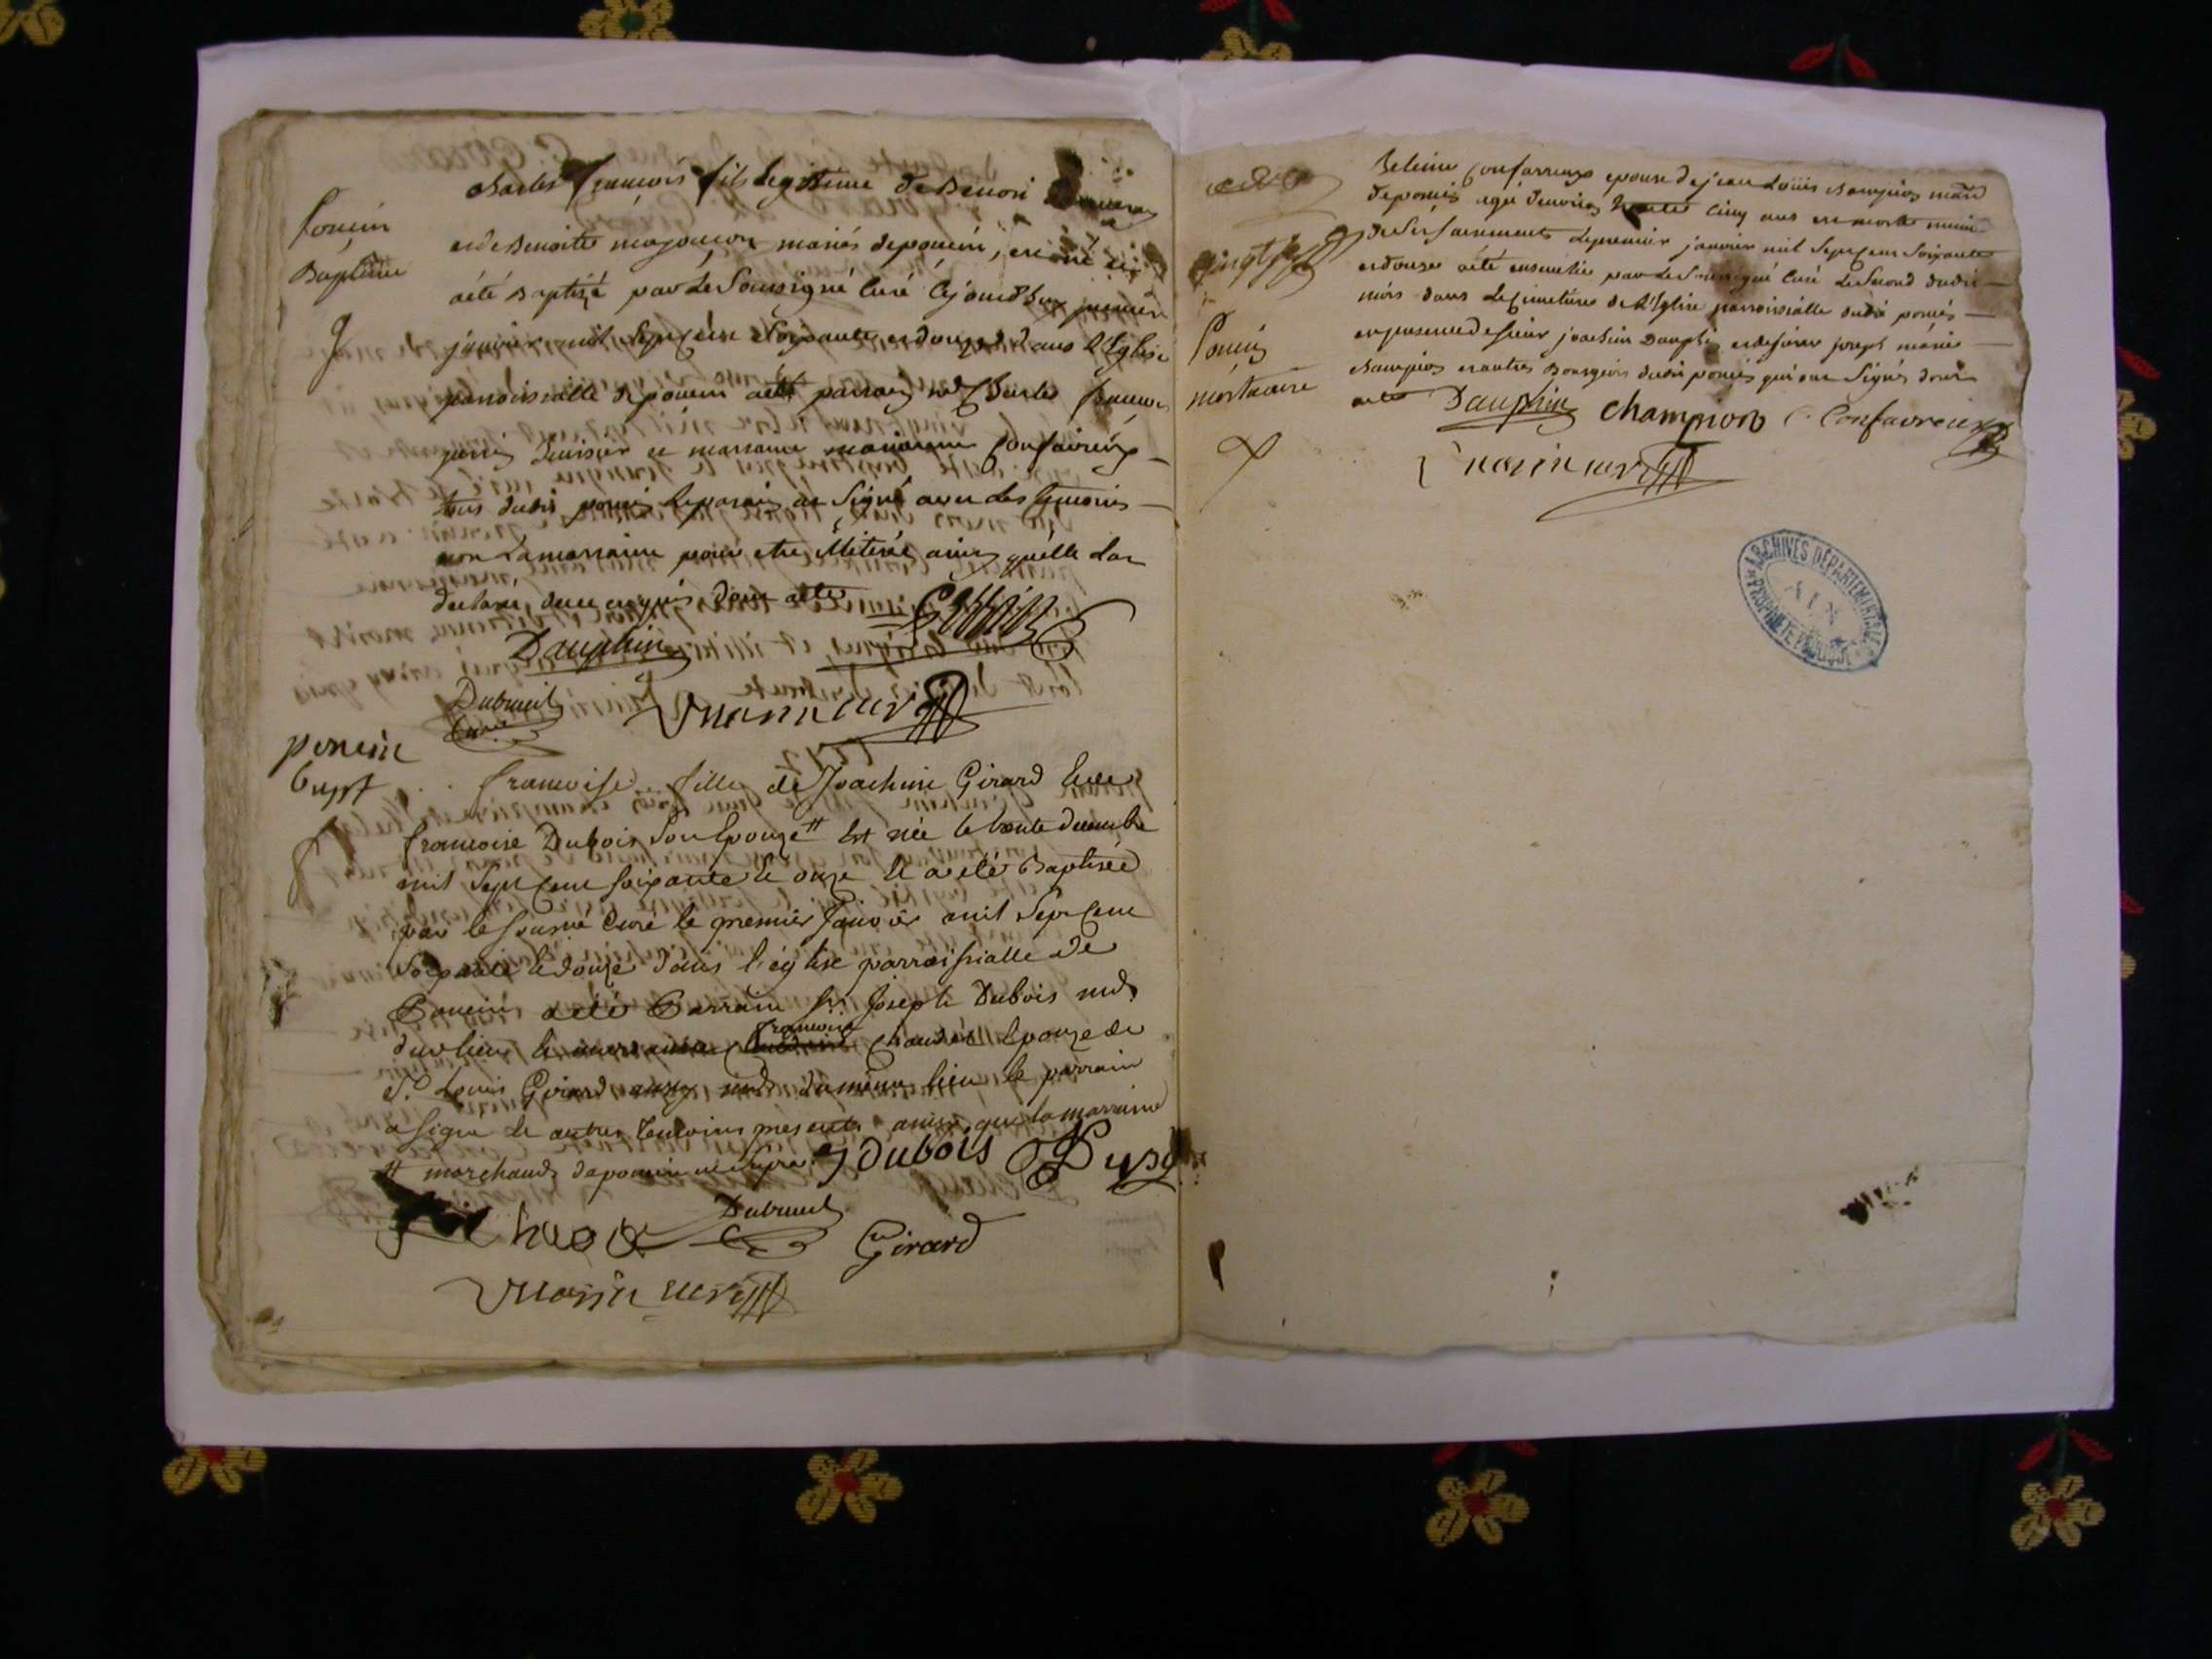 Poncin
Baptême
charles françois fils legitime de Benoit
et de Benoite mojoucon mariés de poncin, est né et
a été Baptizé par le Soussigné Curé cejourdhuy premier
janvier mil sept cent Soixante et douze dans L'Eglise
parroissialle de poncin a été parrain Charles françois
huissier et marraine confavreux
tous dudit poncin Le parain a Signé avec les temoins
non La marraine pour etre illiterée ainsy qu'elle L'a
declaré, de ce enquis dont acte
Dauphin
Dubreuil
Curé
poncin
bapt
francoise fille de Joachim Girard et de
francoise Dubois Son Epouze # Est née le trente decembre
mil Sept cent soixante et onze et a été Baptisée
par le sousné curé le premier Janvier mil Sept cent
Soixante et douze dans l'église parroissialle de
Poncin a été Parrain Sr Joseph Dubois md
du lieu et marraine francoise Epouze de
Sr Louis Girard aussy md du même lieu le parrain
a signé et autres temoins presents ainsy que la marraine
# marchands de poncin
J Dubois
Dubreuil
Girard
Poncin
mortuaire
Heleine Confavreux epouse de jean Loüis champion mard
de poncin agée d'environ cinq ans est morte munie
de Ses Sacrements Le premier janvier mil Sept cent Soixante
et douze a été ensevelie par Le Soussigné Curé Le Second dudit
mois dans Le Cimetiere de L'Eglise parroissialle dudit poncin
en presence de sieur joachim Dauphin et de sieur joseph marie
champion et autres Bourgeois dudit poncin qui ont Signés dont
acte Dauphin Champion C. Confavreux
ARCHIVES DÉPARTEMENTALES
AIN
PROPRIÉTÉ PUBLIQUE